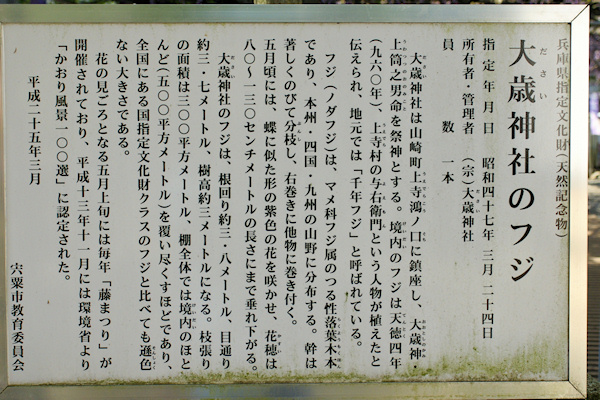 兵庫県指定文化財(天然記念物)
大歳神社のフジ
だ さい
指定年月日 昭和四十七年 三月 二十四日
所有者・管理者 (宗)大歳神社
員 数 一本
大歳神社は山崎町上寺鴻ノ口に鎮座し、大歳神・
上筒之男命を祭神とする。境内のフジは天徳四年
(九六〇年)、上寺村の与右衛門という人物が植えたと
伝えられ、地元では「千年フジ」と呼ばれている。
フジ(ノダフジ)は、マメ科フジ属のつる性落葉木本
であり、本州・四国・九州の山野に分布する。幹は
著しくのびて分枝し、右巻きに他物に巻き付く。
五月頃には、蝶に似た形の紫色の花を咲かせ、花穂は
八〇~一三〇センチメートルの長さにまで垂れ下がる。
大歳神社のフジは、根回り約三・八メートル、目通り
約三・七メートル、樹高約三メートルになる。枝張り
の面積は三〇〇平方メートル、棚全体では境内のほと
んど(五〇〇平方メートル)を覆い尽くすほどであり、
全国にある国指定文化財クラスのフジと比べても遜色
ない大きさである。
花の見ごろとなる五月上旬には毎年「藤まつり」が
開催されており、平成十三年十一月には環境省より
「かおり風景一〇〇選」に認定された。
平成二十五年三月
宍粟市教育委員会